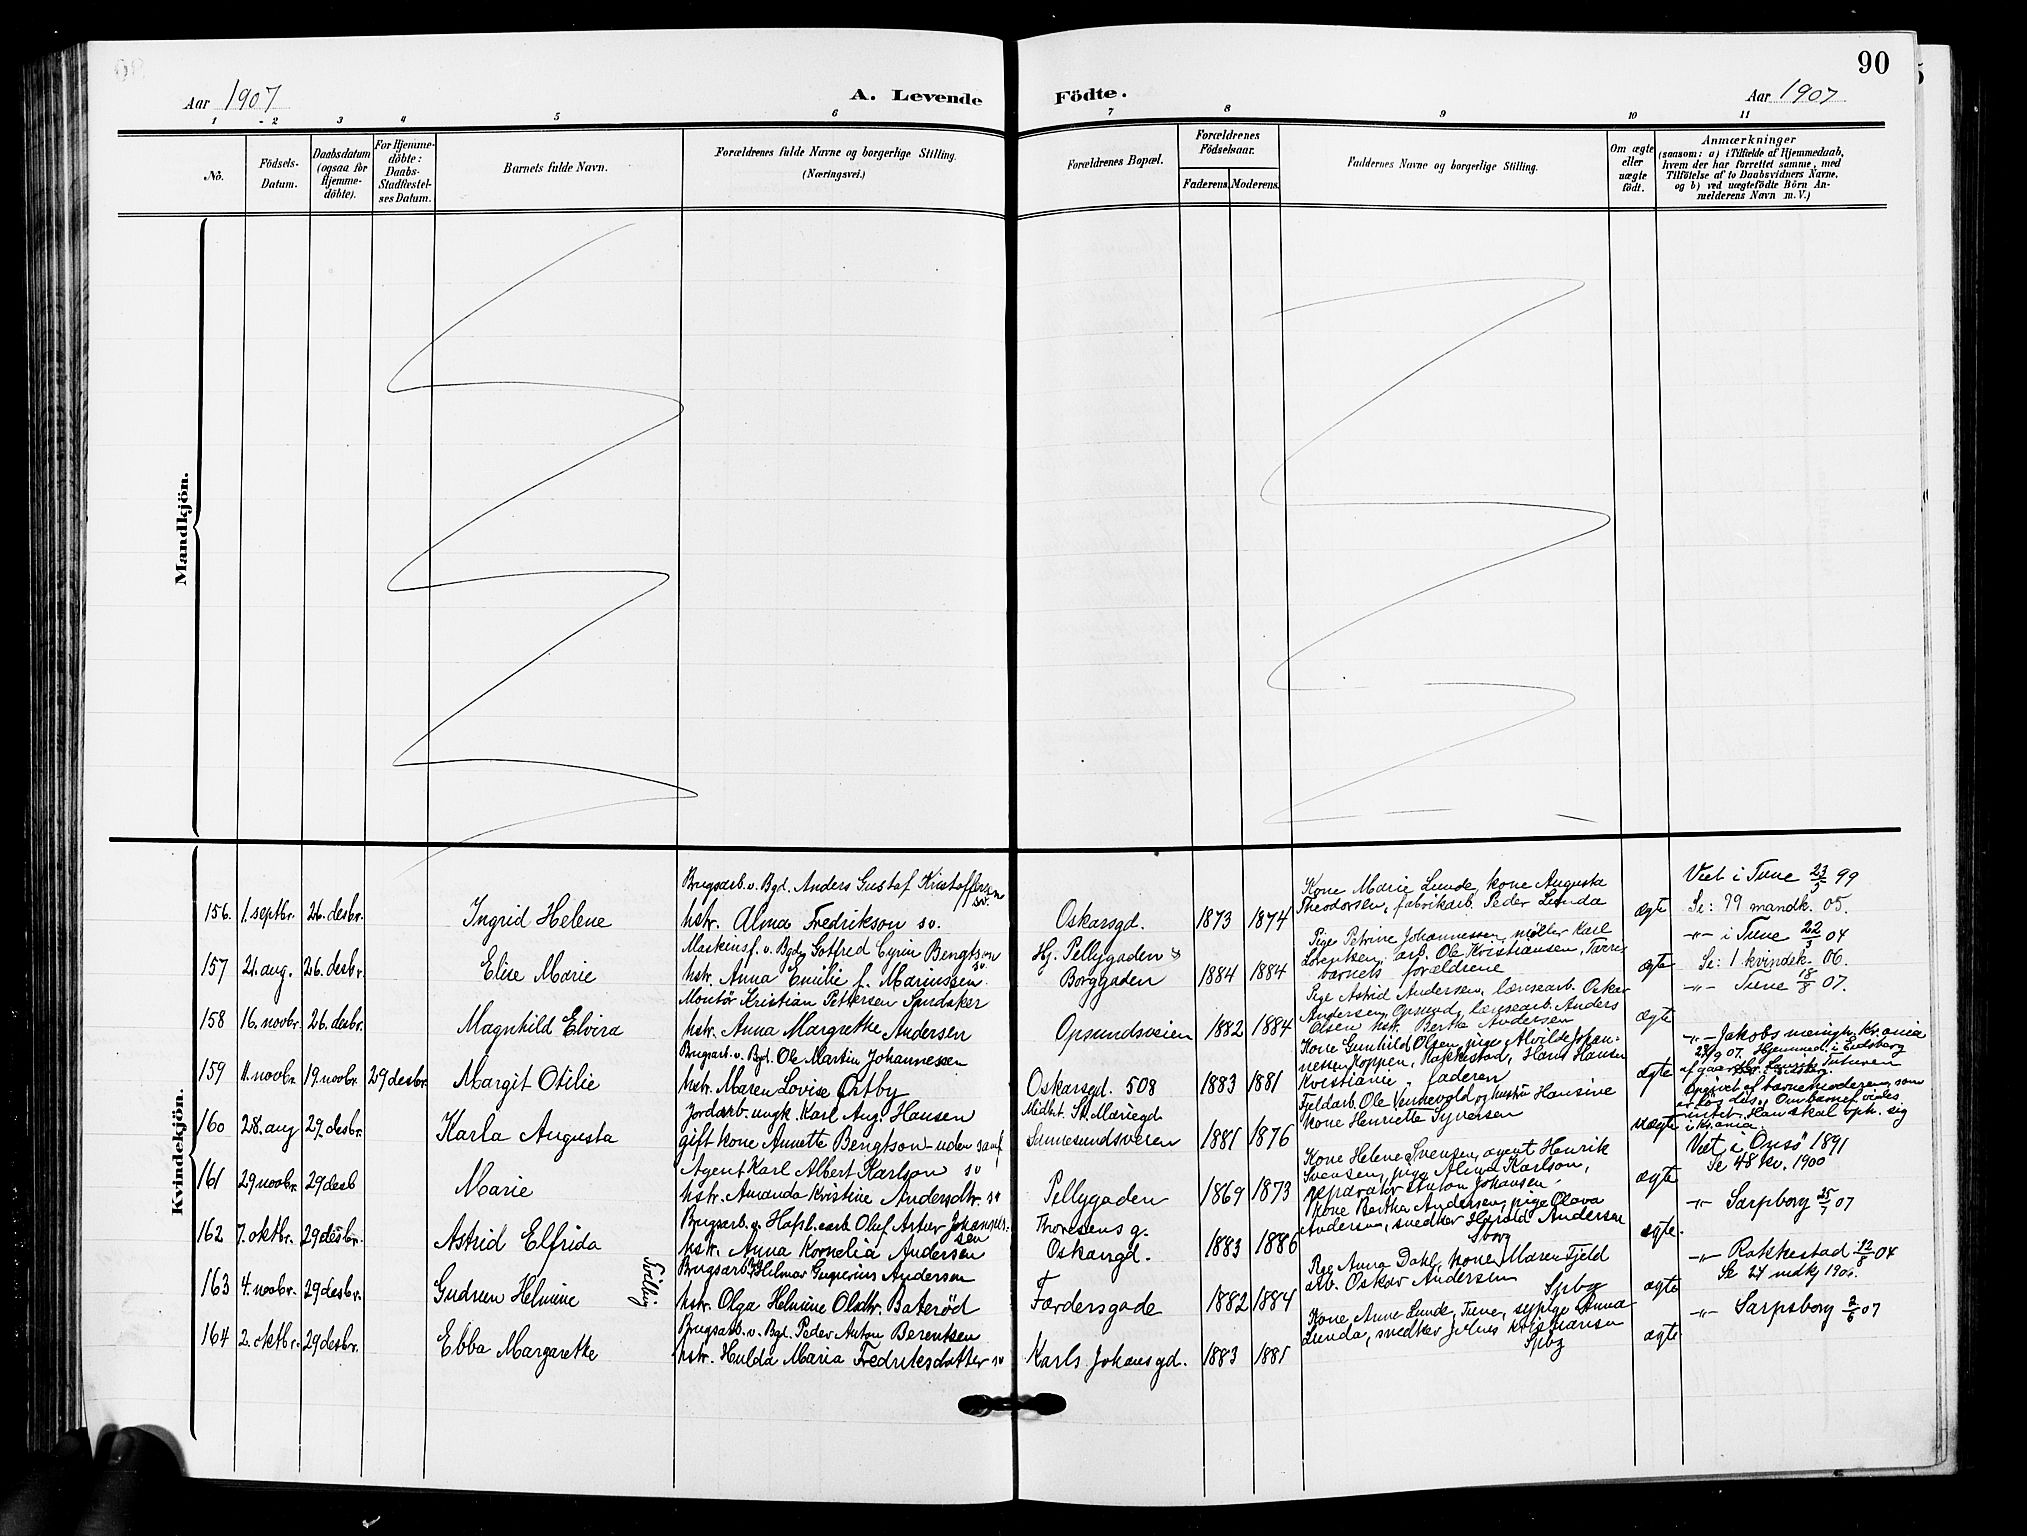 90
Aar 1907
A. Levende
Födte.
Aar 1907
1 2 3 4 5 6 7 8 9 10 11
No.
Födsels-
Datum.
Daabsdatum
(ogsaa for
Hjemme-
döbte).
For Hjemme-
döbte:
Daabs-
Stadfestel-
ses Datum.
Barnets fulde Navn.
Forældrenes fulde Navne og borgerlige Stilling.
(Næringsvei.)
Forældrenes Bopæl.
Forældrenes
Födselsaar.
Faderens. Moderens.
Faddernes Navne og borgerlige Stilling.
Om ægte
eller
uægte
födt.
Anmærkninger
(saasom: a) i Tilfælde af Hjemmedaab,
hvem der har forrettet samme, med
Tilföielse af to Daabsvidners Navne.
og b) ved uægtefödte Börn An-
melderens Navn m. V.)
Mandkjön.
Kvindekjön.
156. 1. septbr. 26. desbr.
Ingrid Helene
Brugsarb. v. Bgd. Anders Gustaf Kristoffersen
sv.
hstr. Alma Fredrikson sv.
Oskarsgd.
1873 1874
Kone Marie Lunde, kone Augusta
Theodorsen, fabrikarb. Peder Lunda
ægte
Viet i Tune 23/3 99
Se: 99 mandk. 05.
157 21. aug. 26. desbr.
Elise Marie
Maskinsf. v. Bgd. Gotfred Cyrin Bengtson
sv.
hstr. Anna Emilie f. Mariussen
Hj. Pellygaden &
Borggaden
1884 1884
Pige Petrine Johannessen, møller Karl
Lorentsen, arb. Ole Kristiansen, Tune
barnets forældrene
ægte
-"- i Tune 22/3 04
Se: 1 kvindek. 06.
158 16. novbr. 26. desbr.
Magnhild Elvira
Montör Kristian Pettersen Sandaker
hstr. Anna Margrethe Andersen
Opsundsveien
1882 1884
Pige Astrid Andersen, lænsearb. Oskar
Andersen, Opsund, lænsearb. Anders
Olsen hstr. Berthe Andersen
ægte
-"- Tune 18/8 07.
159 11. novbr. 19. novbr. 29 desbr.
Margit Otilie
Brugsarb. v. Bgd. Ole Martin Johannesen
hstr. Maren Lovise Östby
Oskarsgd. 508
1883 1881
Kone Gunhild Olsen, pige Alvilde Johan-
nessen Koppen, Rakkestad, Hans Hansen
Kristiania, faderen
ægte
-"- Jakobs menigh. Kr.ania
27/9 07. Hjemmed. i Eidsberg
160 28. aug 29. desbr.
Karla Augusta
Jordarb. ungk. Karl Aug. Hansen
gift kone Annette Bengtson uden samf.
Midlt. St. Mariegd
Sannesundsveien
1881 1876
Fjeldarb. Ole Vennevold og hustru Hansine
kone Henriette Syversen
uægte
Opgivet af barnemoderen, som
Om barnef. vides
intet. Han skal oph. sig
i Kr.ania.
161 29 novbr. 29 desb
Marie
Agent Karl Albert Karlson sv
hstr. Amanda Kristine Andersdtr. sv
Pellygaden
1869 1873
Kone Helene Svensen, agent Henrik
Svensen, pige Alma Karlson,
reparatör Anton Johansen.
ægte
Viet i Onsö 1891
Se 48 kv. 1900
162 7. oktbr. 29 desbr.
Astrid Elfrida
Brugsarb. g. Hafsl. arb. Oluf Artur Johannes-
sen
hstr. Anna Kornelia Andersen
Thoresens g.
Oskarsgd.
1883 1886
Kone Berthe Andersen, pige Olava
Andersen, snedker Harald Andersen
Sborg
ægte.
-"- Sarpborg 25/7 07
163 4. novbr. 29 desbr.
Gudrun Helmine
Tvilling
Brugsarb. Hilmar Gunerius Andersen
hstr. Olga Helmine Olsdtr. Baterød
Færdersgade
1882 1884
Pige Anna Dahl, kone Maren Fjeld
arb. Oskar Andersen Spbg
ægte
-"- Rakkestad 12/8 04
Se 27 mdkj 190.
164 2. oktbr. 29 desbr.
Ebba Margarethe
Brugsarb. v. Bgd. Peder Anton Berentsen
hstr. Hulda Maria Fredriksdatter sv
Karls Johans gd.
1883 1881
Kone Anne Lunde, Tune, sypige Anna
Lunda, snedker Julius Kristiansen
Spbg
ægte
-"- Sarpsborg 2/6 07